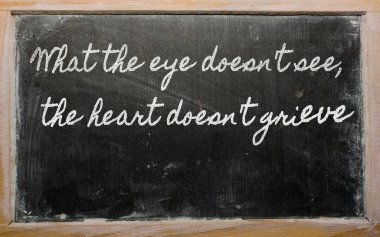 What the eye doesn't see,
the heart doesn't grieve